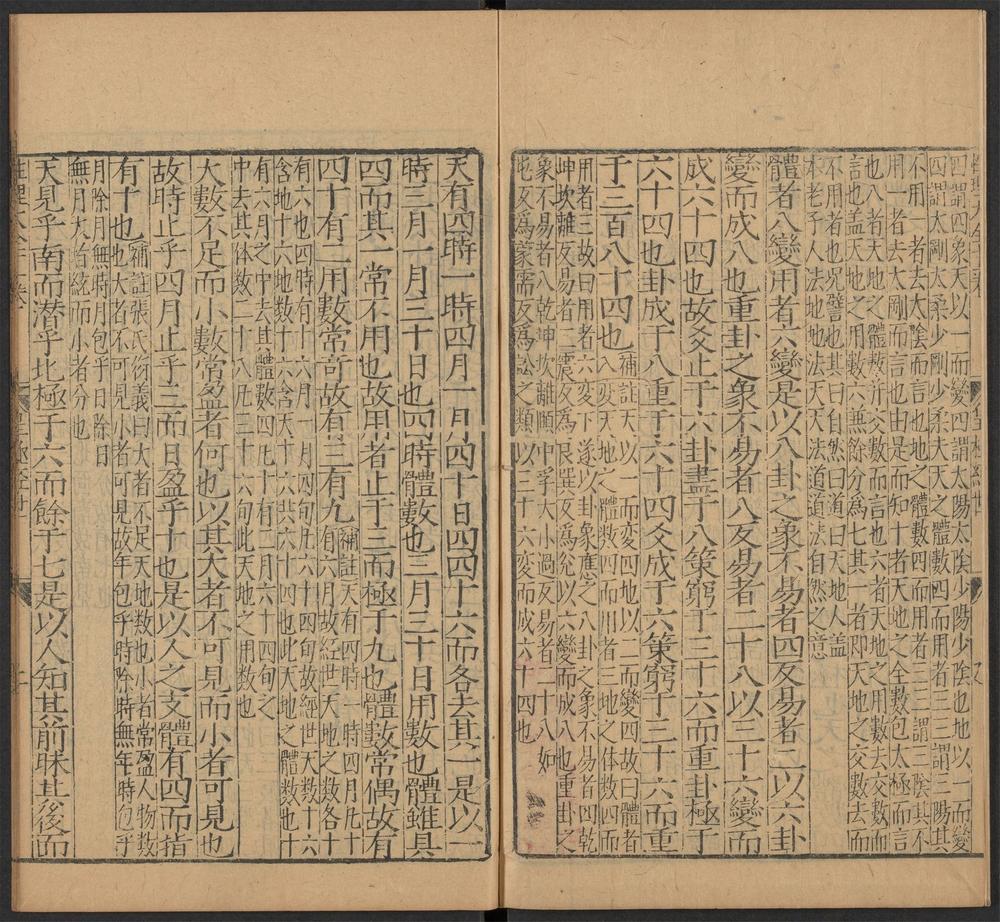 四謂四象天以一而變四謂太陽太陰少陽少陰也地以一而變
四謂太剛太柔少剛少柔夫天之體數四而用者三三謂三陽其
不用一者去太陰而言也地之體數四而用者三三謂三陰其不
用一者去太剛而言也由是而知十者天地之全數包太極而言
也八者天地之體數并交數而言也六者天地之用數去交數而
言也盖天地之用數六兼餘分爲七其一者即天地之交數去而
不用者也況譬也其曰自然曰道曰天地人盖
本老子人法地地法天天法道道法自然之意
體者八變用者六變是以八卦之象不易者四反易者二以六卦
變而成八也重卦之象不易者八反易者二十八以三十六變而
成六十四也故爻止于六卦盡于八策窮于三十六而重卦極于
六十四也卦成于八重于六十四爻成于六策窮于三十六而重
于三百八十四也
補註天以一而変四地以一而變四故曰體者
八変天地之體數四而用者三地之体數四而
用者三故曰用者六変下遂以卦象應之八卦之象不易者四乾
坤坎離反易者二震反爲艮巽反爲兊以六變而成八也重卦之
象不易者八乾坤坎離頥中孚大小過反易者二十八如
屯反爲蒙需反爲訟之類以三十六変而成六十四也
天有四時一時四月一月四十日四四十六而各去其一是以一
時三月一月三十日也四時體數也三月三十日用數也體雖具
四而其一常不用也故用者止于三而極于九也體數常偶故有
四十有二用數常竒故有三有九
補註天有四時一時四月凡十
有六月故經世天地之数各十
有六也四時有十六月一月四旬凡六十四旬故經世天数十六
含地十六地数十六含天十六共六十四也此天地之體数也十
有六月之中去其體數四凡十有二月六十四旬之
中去其体数二十八凡三十六旬此天地之用数也
大數不足而小數常盈者何也以其大者不可見而小者可見也
故時止乎四月止乎三而日盈乎十也是以人之支體有四而指
有十也
補註張氏衍義曰大者不足天地数也小者常盈人物数
也大者不可見小者可見故年包乎時除時無年時包乎
月除月無時月包乎日除日
無月大者統而小者分也
天見乎南而潜乎北極于六而餘于七是以人知其前昧其後而